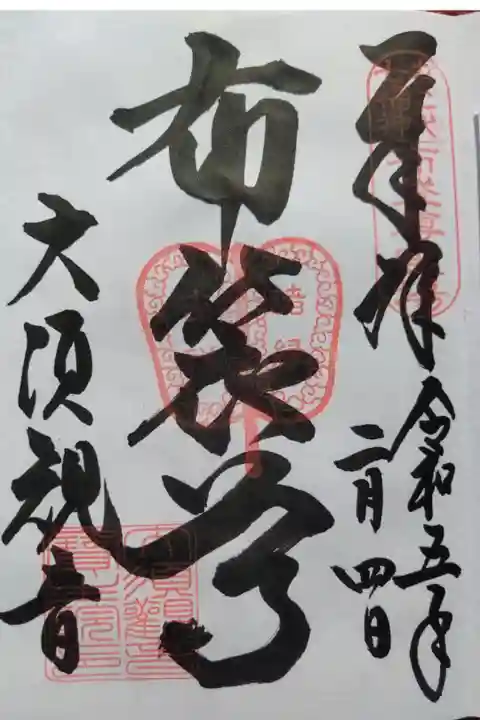 奉拝
令和五年
二月四日
布袋尊
大須観音